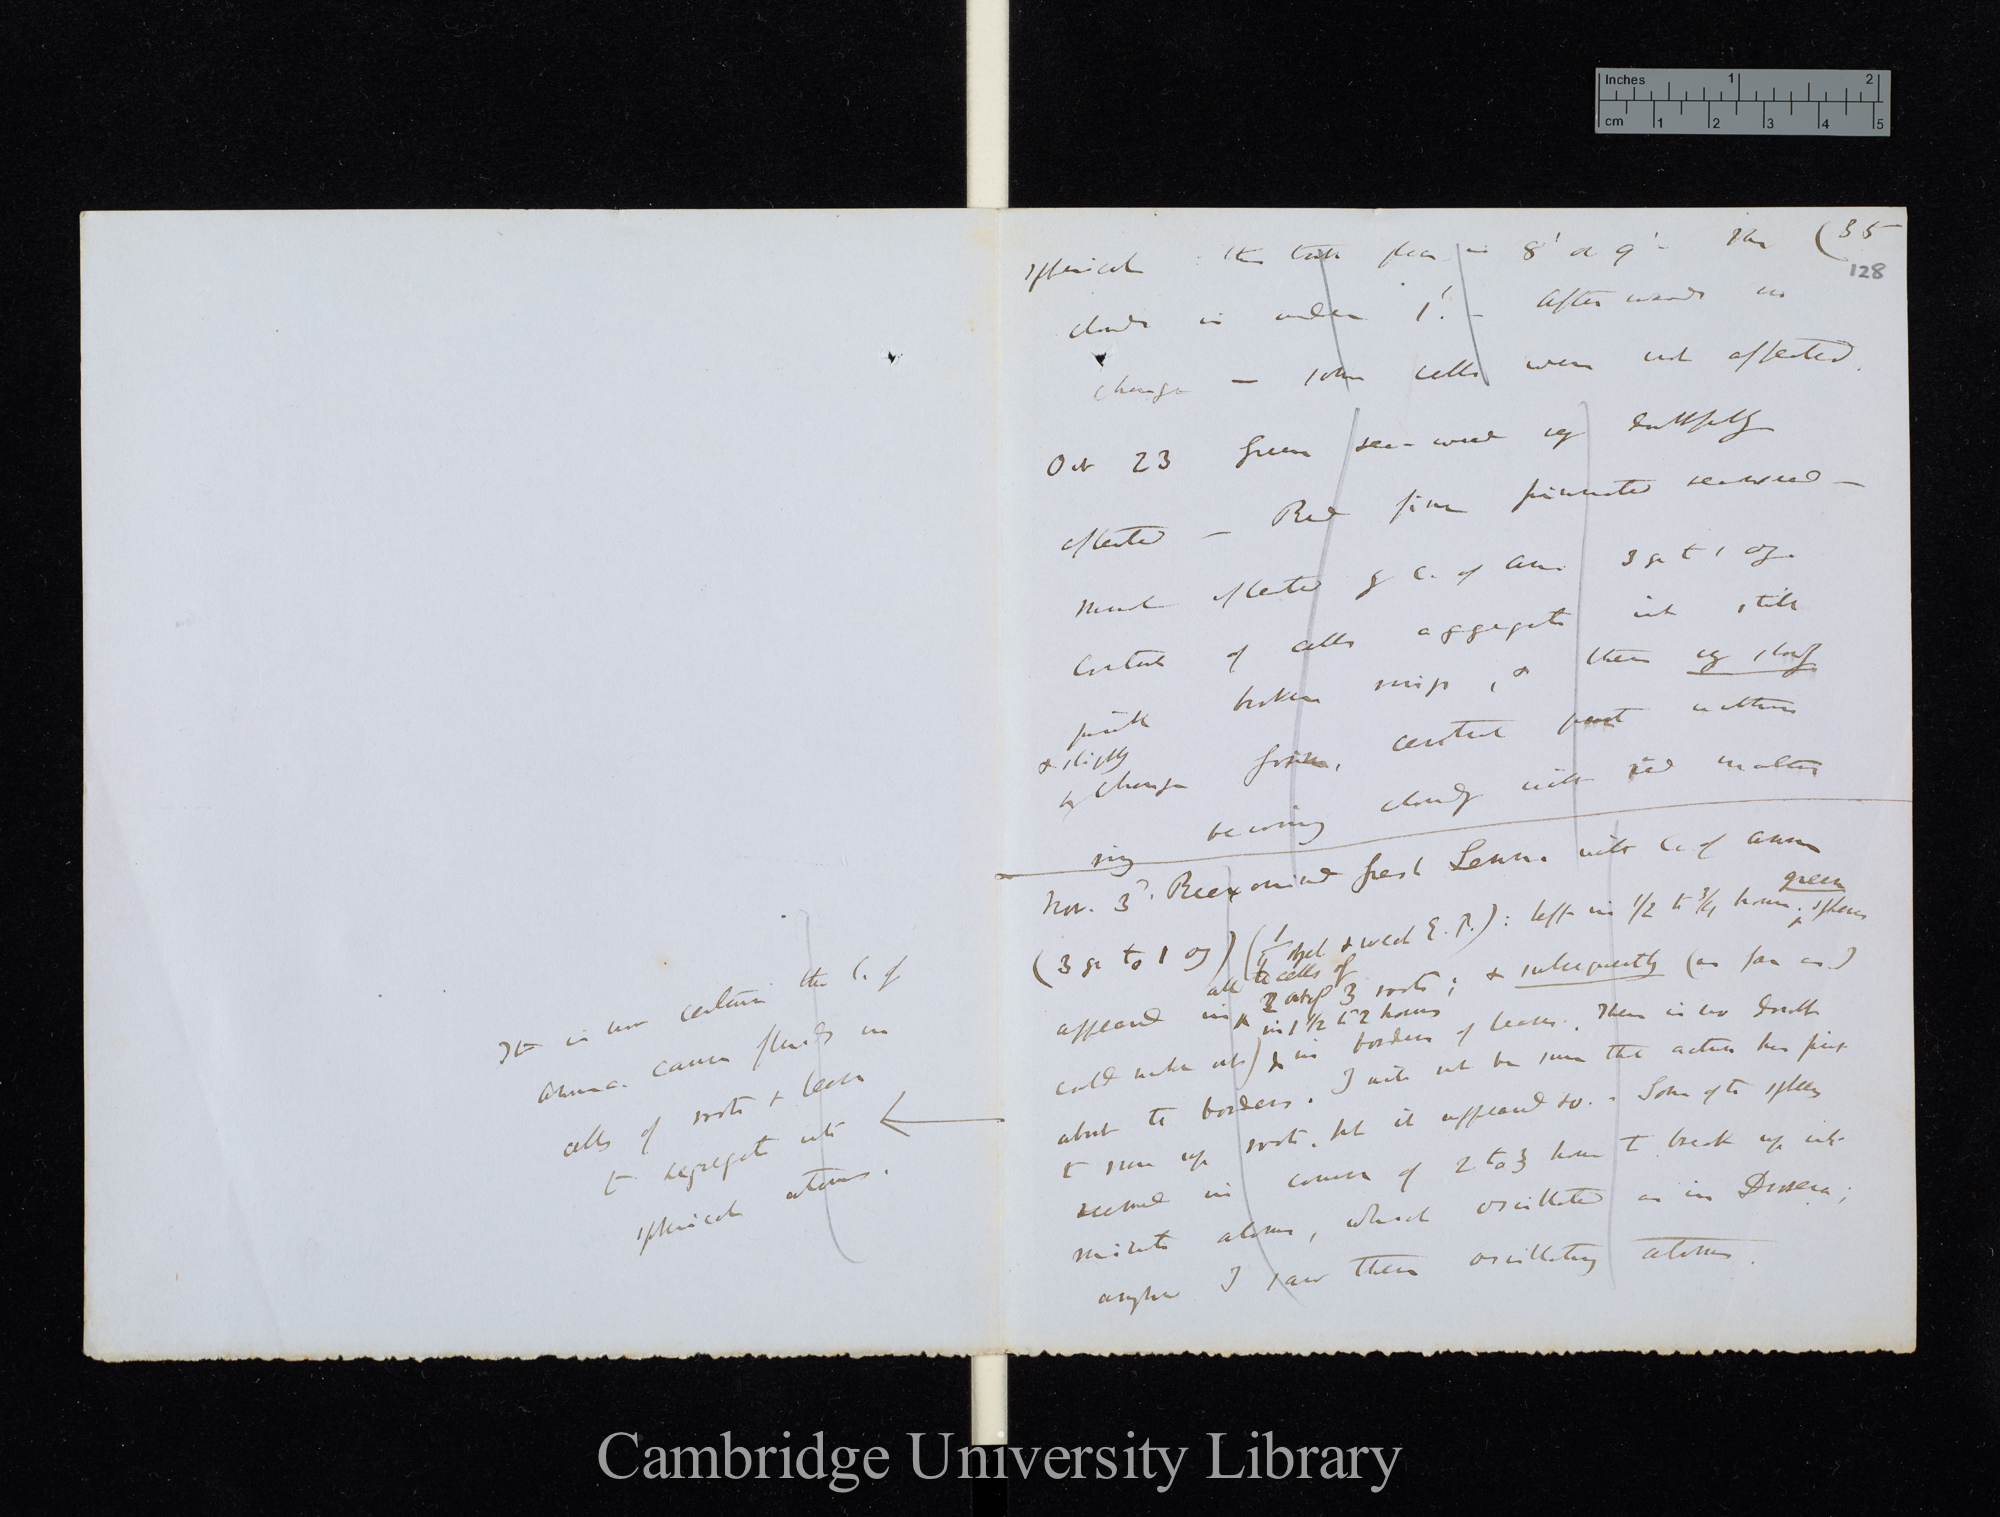 It is now certain the C. of
Ammonia causes fluids in
cells of roots & leaves
to segregate into
spherical atoms.
(35
128
spherical: this took place in 8' or 9'. The
clouds in under 1'. – Afterwards no
change — some cells were not affected.
Oct 23 Green sea-weed very doubtfully
affected — Red fine pinnated seaweed —
much affected by C. of Am. 3 gr to 1 oz.
Contents of cells aggregate into still
pink broken rings, & these very slowly
& slightly
change form, central part within
ring becoming cloudy with red matter
Nov. 3d. Reexamined fresh Lemna with C. of amm
(3 gr to 1 oz) (1/4 object & weak E. P.): left in 1/2 to 3/4 hour. green spheres
all the cells of
appeared in 2 out of 3 roots; & subsequently (as far as I
in 1 1/2 to 2 hours
could make out) & in borders of leaves. There is no doubt
about the borders. I will not be sure that action has first
to run up roots, but it appeared so. – Some of the spheres
seemed in course of 2 to 3 hours to break up into
minute atoms, which oscillated as in Drosera;
anyhow I saw these oscillating atoms.
Inches 1 2
cm 1 2 3 4 5
Cambridge University Library